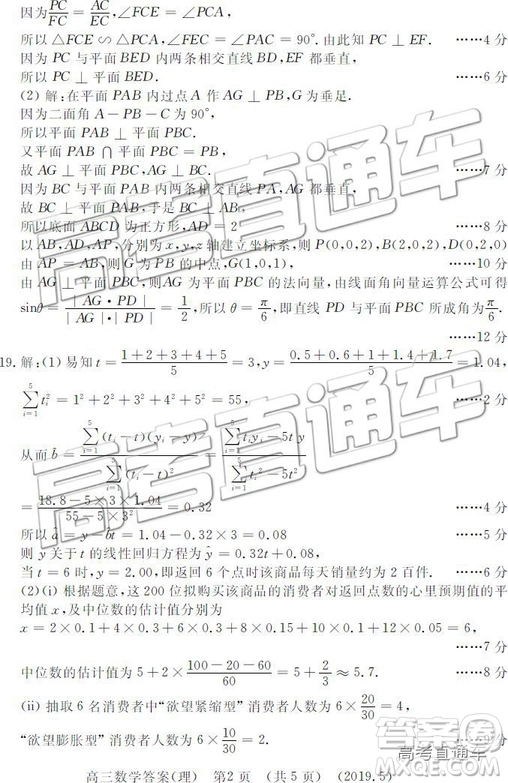 因为PC/FC=AC/EC,∠FCE=∠PCA,
所以 △FCE∽△PCA,∠FEC=∠PAC=90°.由此知 PC⊥EF. ……4分
因为 PC 与平面 BED 内两条相交直线 BD,EF 都垂直,
所以 PC⊥平面 BED. ……6分
(2)解:在平面 PAB 内过点 A 作 AG⊥PB,G 为垂足.
因为二面角 A-PB-C 为 90°,
所以平面 PAB⊥平面 PBC.
又平面 PAB∩平面 PBC=PB,
故 AG⊥平面 PBC,AG⊥BC. ……7分
因为 BC 与平面 PAB 内两条相交直线 PA,AG 都垂直,
故 BC⊥平面 PAB,于是 BC⊥AB,
所以底面 ABCD 为正方形,AD=2 ……8分
以 AB,AD,AP,分别为 x,y,z 轴建立坐标系,则 P(0,0,2),B(2,0,2),D(0,2,0)
由 AP=AB,则 G 为 PB 的中点,G(1,0,1), ……10分
设 PD 与平面 PBC 所成角为θ,则AG为平面 PBC 的法向量,由线面角向量运算公式可得
sinθ=|AG·PD|/|AG|·|PD|=1/2,所以θ=π/6,即直线 PD 与平面 PBC 所成角为π/6.
……12分
19.解:(1)易知 t=(1+2+3+4+5)/5=3,y=(0.5+0.6+1+1.4+1.7)/5=1.04,
∑(i=1→5)tᵢ²=1²+2²+3²+4²+5²=55, ……2分
从而b̂=∑(i=1→5)(tᵢ-t)(yᵢ-y)/∑(i=1→5)(tᵢ-t)²=(∑(i=1→5)tᵢyᵢ-5t y)/(∑(i=1→5)tᵢ²-5t²)
=(18.8-5×3×1.04)/(55-5×3²)=0.32 ……4分
所以â=y-b̂t=1.04-0.32×3=0.08 ……5分
则 y 关于 t 的线性回归方程为ŷ=0.32t+0.08,
当 t=6 时,y=2.00,即返回 6 个点时该商品每天销量约为 2 百件. ……6分
(2)(i)根据题意,这 200 位拟购买该商品的消费者对返回点数的心里预期值的平
均值 x,及中位数的估计值分别为
x=2×0.1+4×0.3+6×0.3+8×0.15+10×0.1+12×0.05=6,
……7分
中位数的估计值为 5+2×(100-20-60)/60=5+2/3≈5.7. ……8分
(ii)抽取 6 名消费者中“欲望紧缩型”消费者人数为 6×20/30=4,
“欲望膨胀型”消费者人数为 6×10/30=2. ……
高三数学答案(理) 第2页 (共5页) (2019.5)
高考直通车
高考直通车
高考直通车
高考直通车